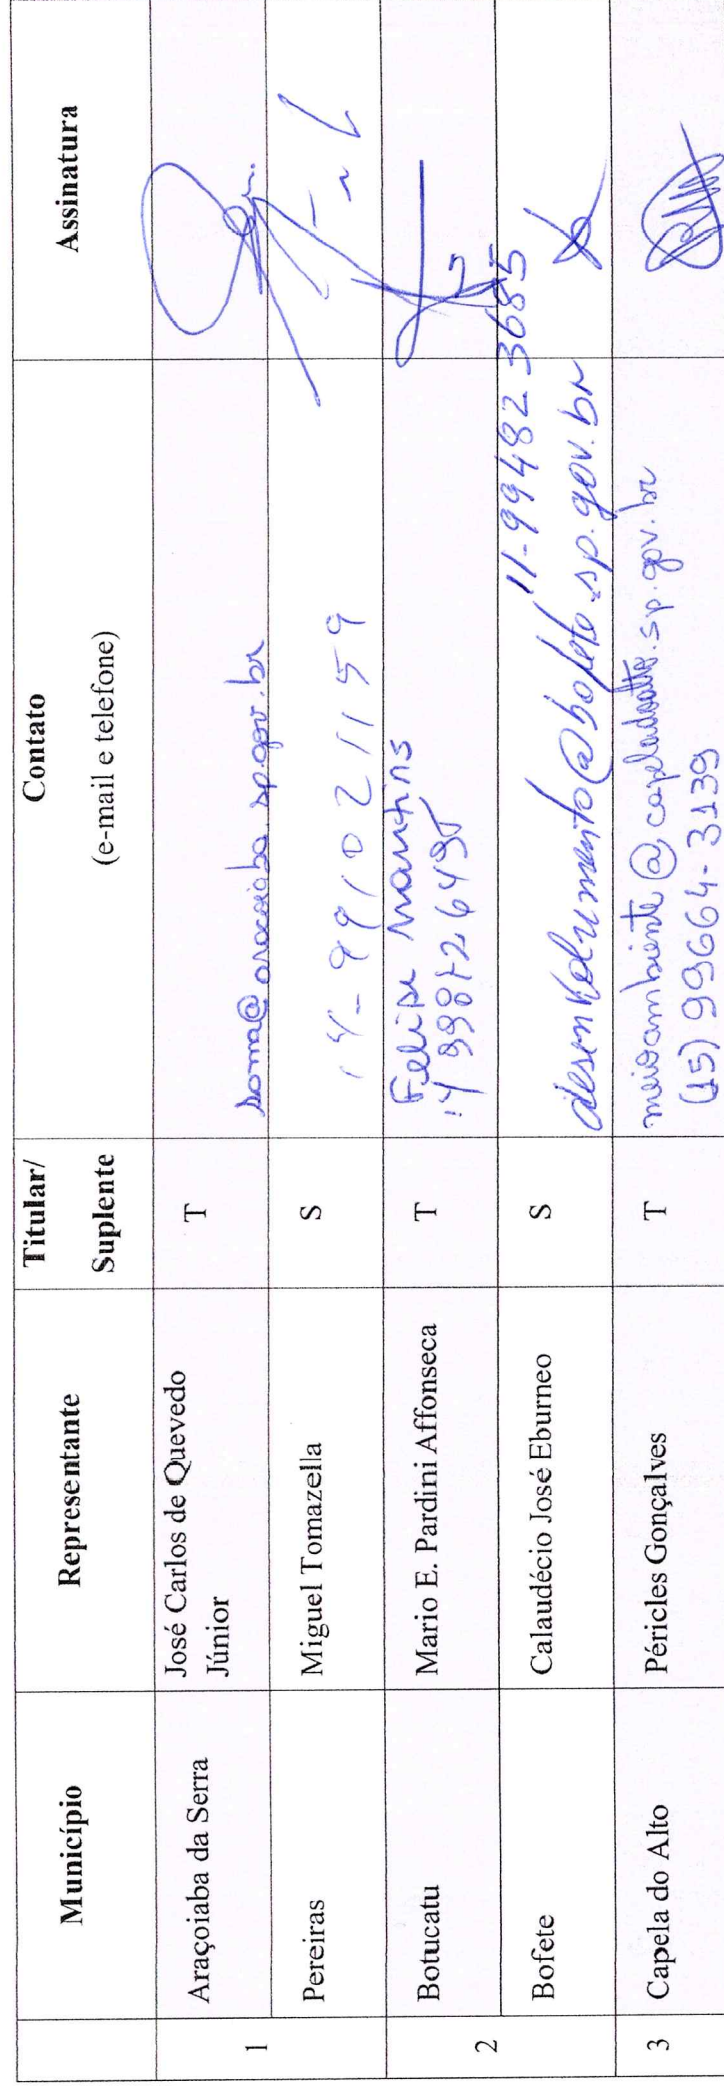 Município
Representante
Titular/
Suplente
Contato
(e-mail e telefone)
Assinatura
1
Araçoiaba da Serra
José Carlos de Quevedo
Júnior
T
sama@aracoiaba.sp.gov.br
Pereiras
Miguel Tomazella
S
14-991021159
2
Botucatu
Mario E. Pardini Affonseca
T
Felipe Martins
Bofete
Calaudécio José Eburneo
S
11-99482 3685
desenvolvimento@bofete.sp.gov.br
3
Capela do Alto
Péricles Gonçalves
T
meioambiente@capeladoalto.sp.gov.br
(15) 99664-3139